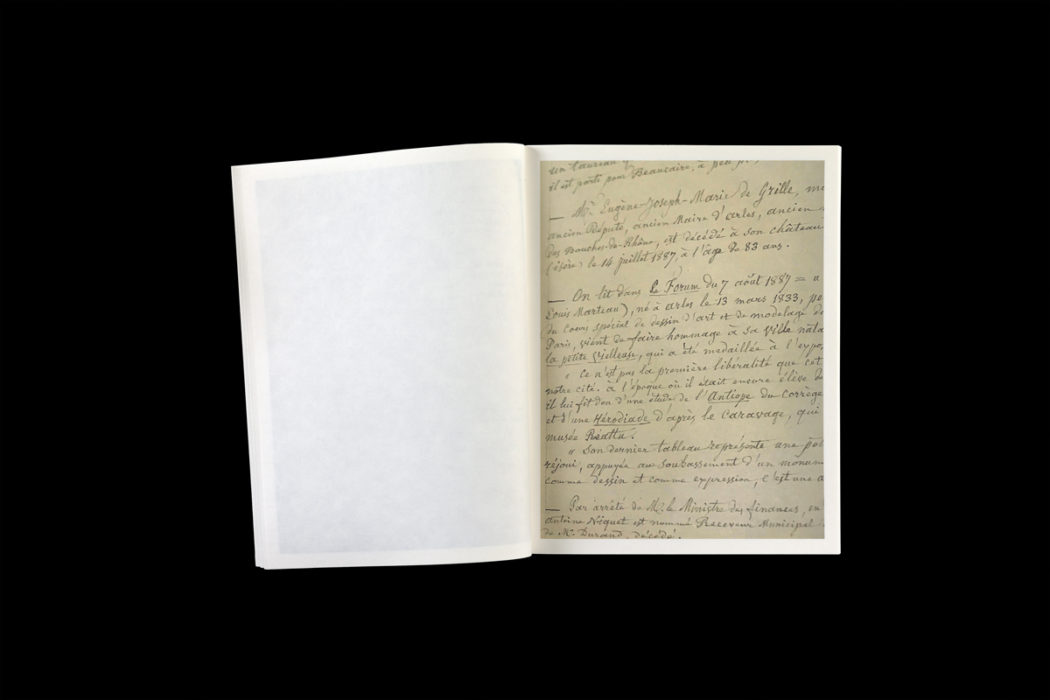 un taureau
il est parti pour Beaucaire, à peu
— Mr. Eugène-Joseph-Marie de Grille,
ancien Député, ancien Maire d'arles, ancien
des Bouches-du-Rhône, est décédé à son château
le 14 juillet 1887, à l'âge de 83 ans.
— On lit dans Le Forum du 7 août 1887 =
Louis Marteau), né à arles le 13 mars 1833,
du Cours spécial de dessin d'art et de modelage
Paris, vient de faire hommage à sa Ville
la petite Vielleuse, qui a été medaillée à
« Ce n'est pas la première libéralité que
notre cité. à l'époque où il était encore élève
il lui fit don d'une étude de l'Antiope du Corrège
et d'une Hérodiade d'après le Caravage, qui
musée Réattu.
« Son dernier tableau représente une
réjoui, appuyée au soubassement d'un
comme dessin et comme expression, c'est une
— Par arrêté de M. le Ministre des finances, en
antoine Néguet est nommé Receveur Municipal
de Mr. Durand, décédé.